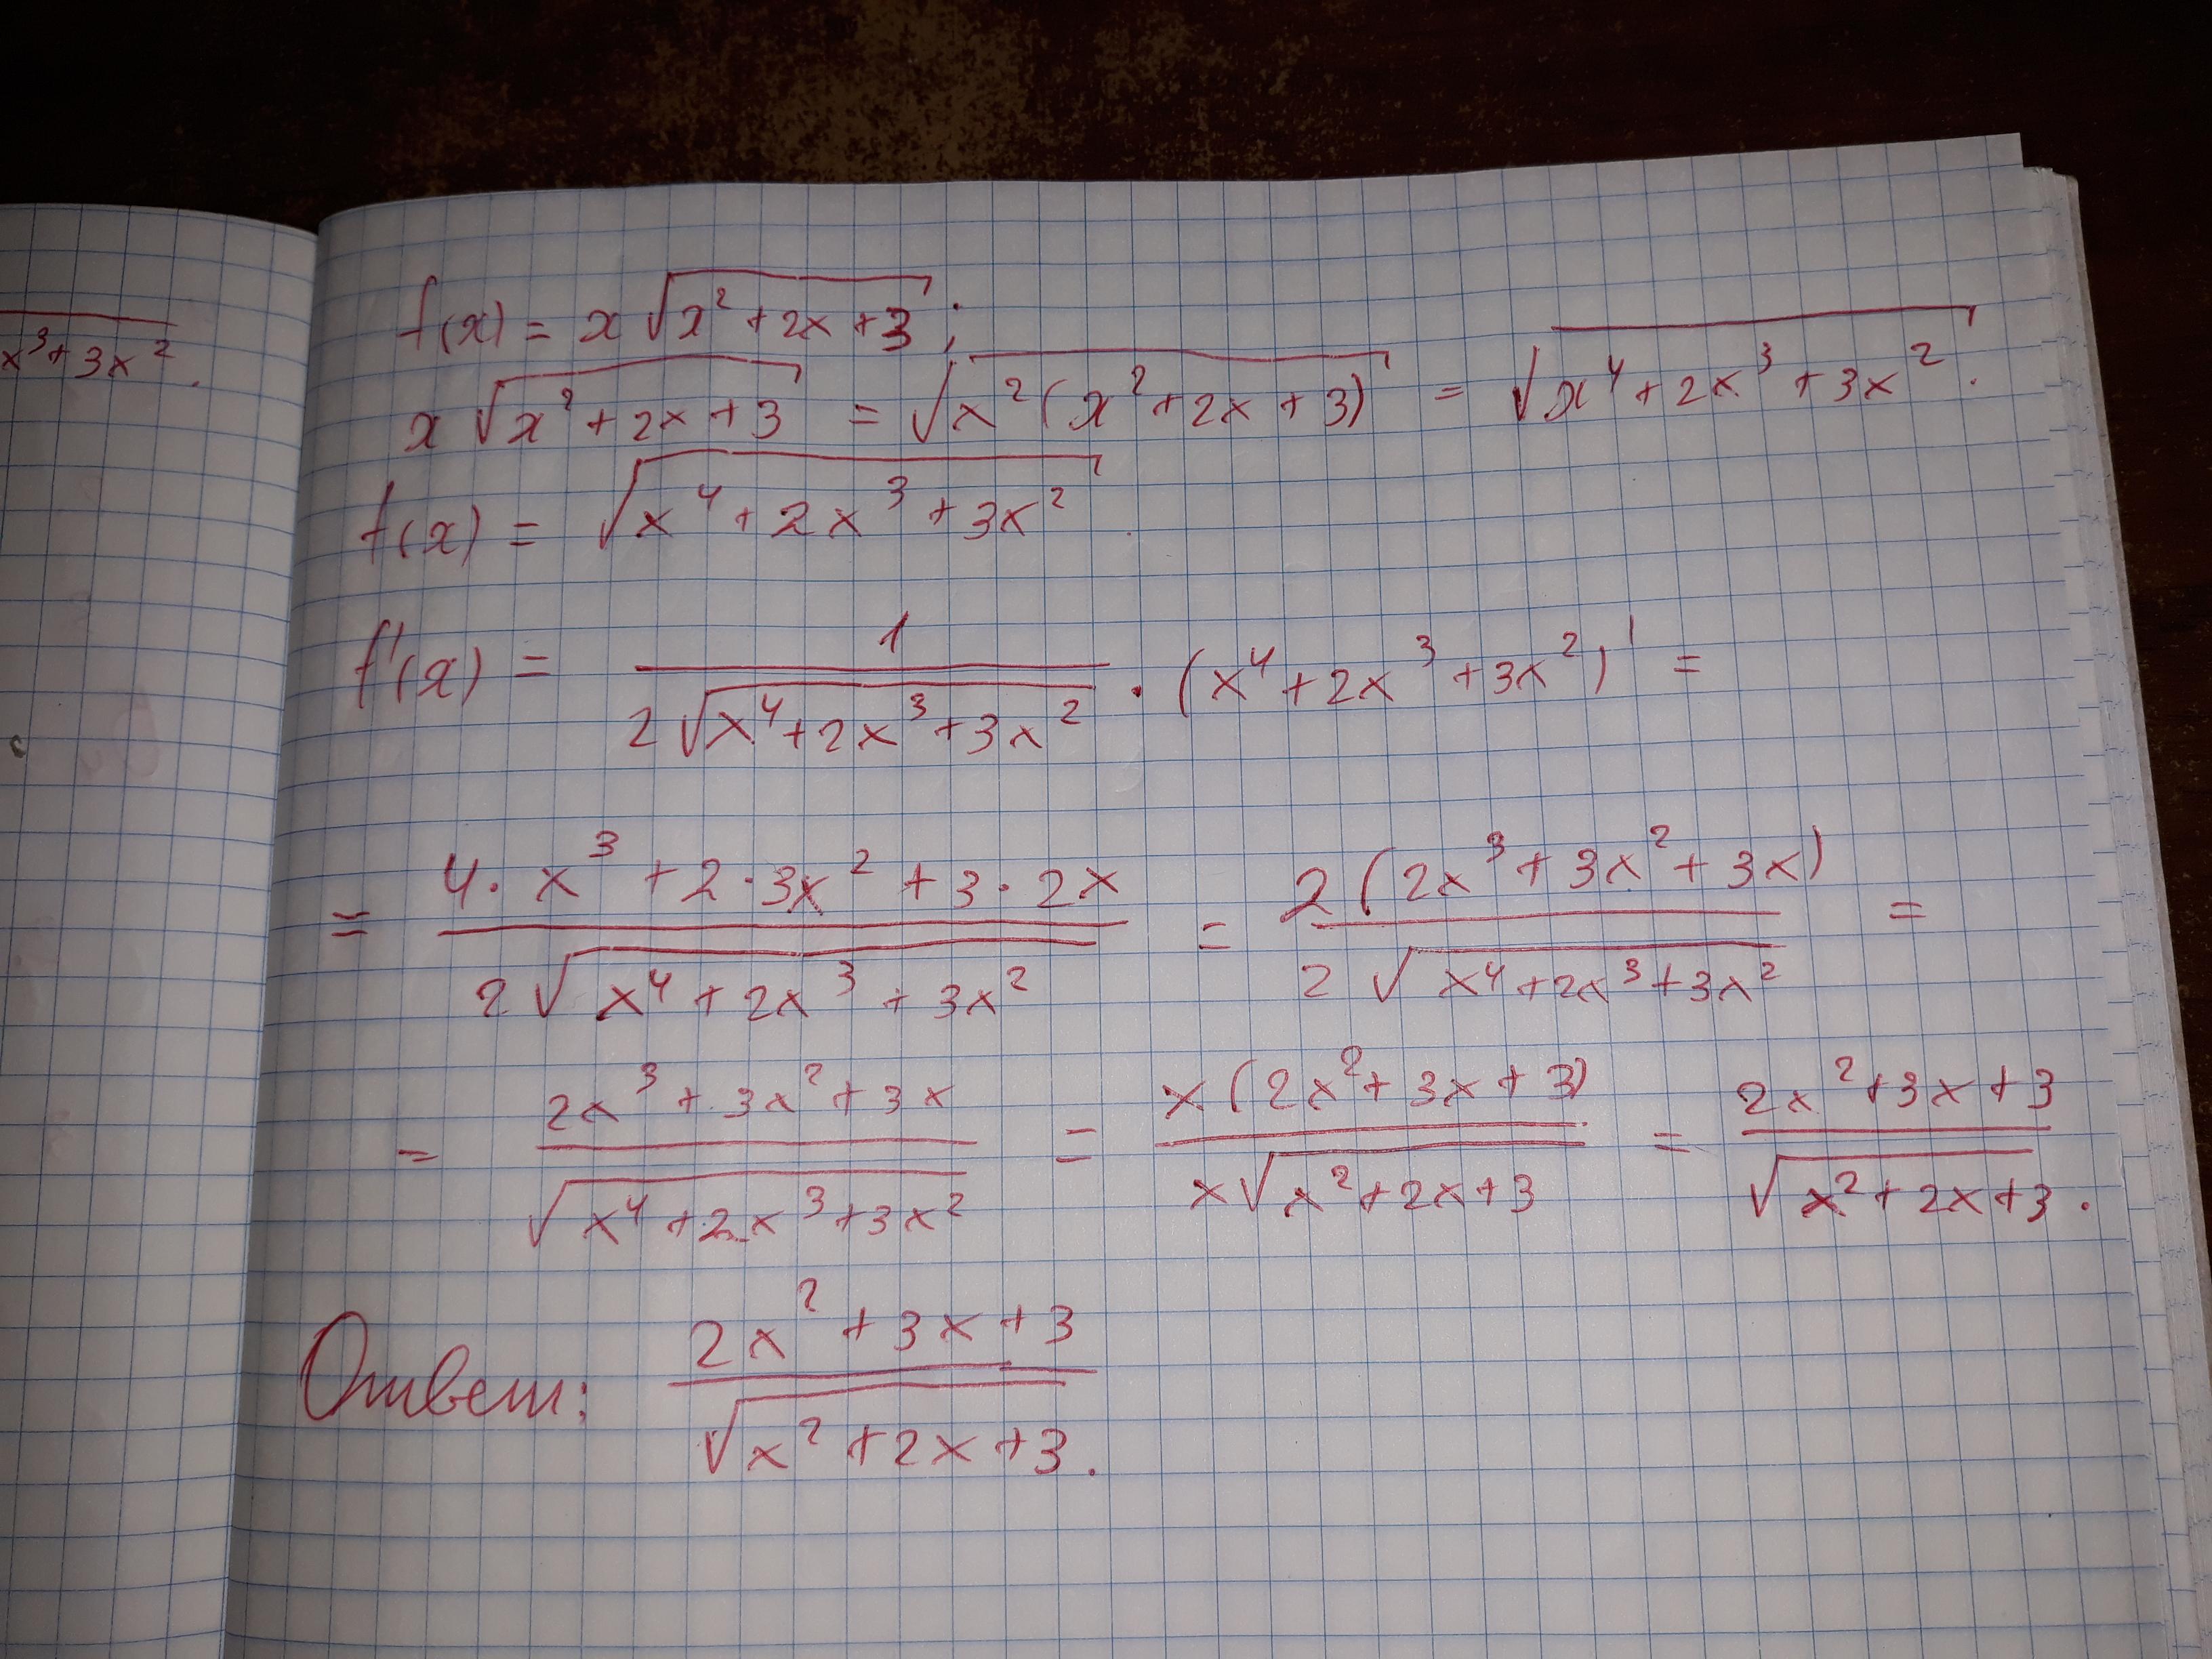 x³+3x².
f(x) = x √(x²+2x+3);
x √(x²+2x+3) = √(x²(x²+2x+3)) = √(x⁴+2x³+3x²).
f(x) = √(x⁴+2x³+3x²)
f'(x) = 1/(2√(x⁴+2x³+3x²)) · (x⁴+2x³+3x²)' =
= (4·x³+2·3x²+3·2x)/(2√(x⁴+2x³+3x²)) = 2(2x³+3x²+3x)/(2√(x⁴+2x³+3x²)) =
= (2x³+3x²+3x)/√(x⁴+2x³+3x²) = x(2x²+3x+3)/(x√(x²+2x+3)) = (2x²+3x+3)/√(x²+2x+3).
Ответ: (2x²+3x+3)/√(x²+2x+3).